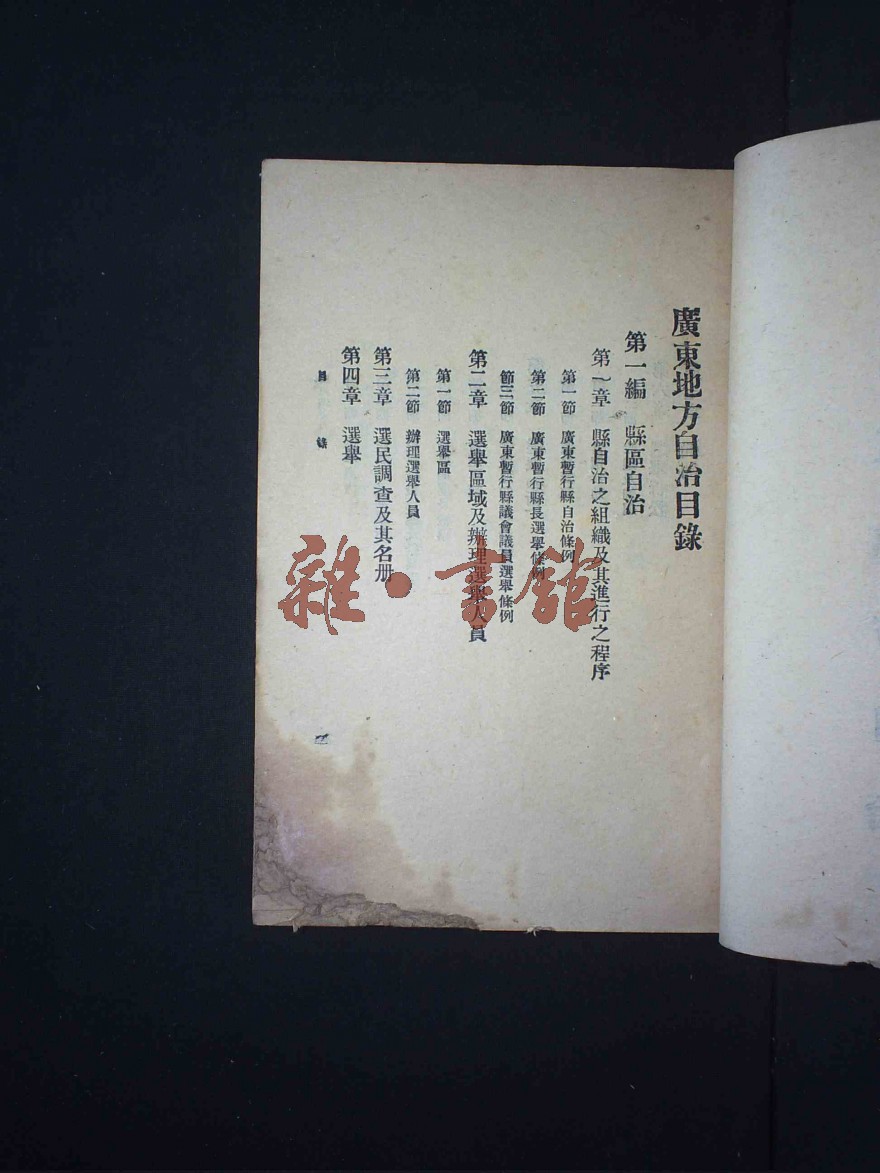 廣東地方自治目錄
第一編 縣區自治
第一章 縣自治之組織及其進行之程序
第一節 廣東暫行縣自治條例
第二節 廣東暫行縣長選舉條例
節三節 廣東暫行縣議會議員選舉條例
第二章 選舉區域及辦理選舉人員
第一節 選舉區
第二節 辦理選舉人員
第三章 選民調查及其名册
第四章 選舉
目 錄
一
雜·書館